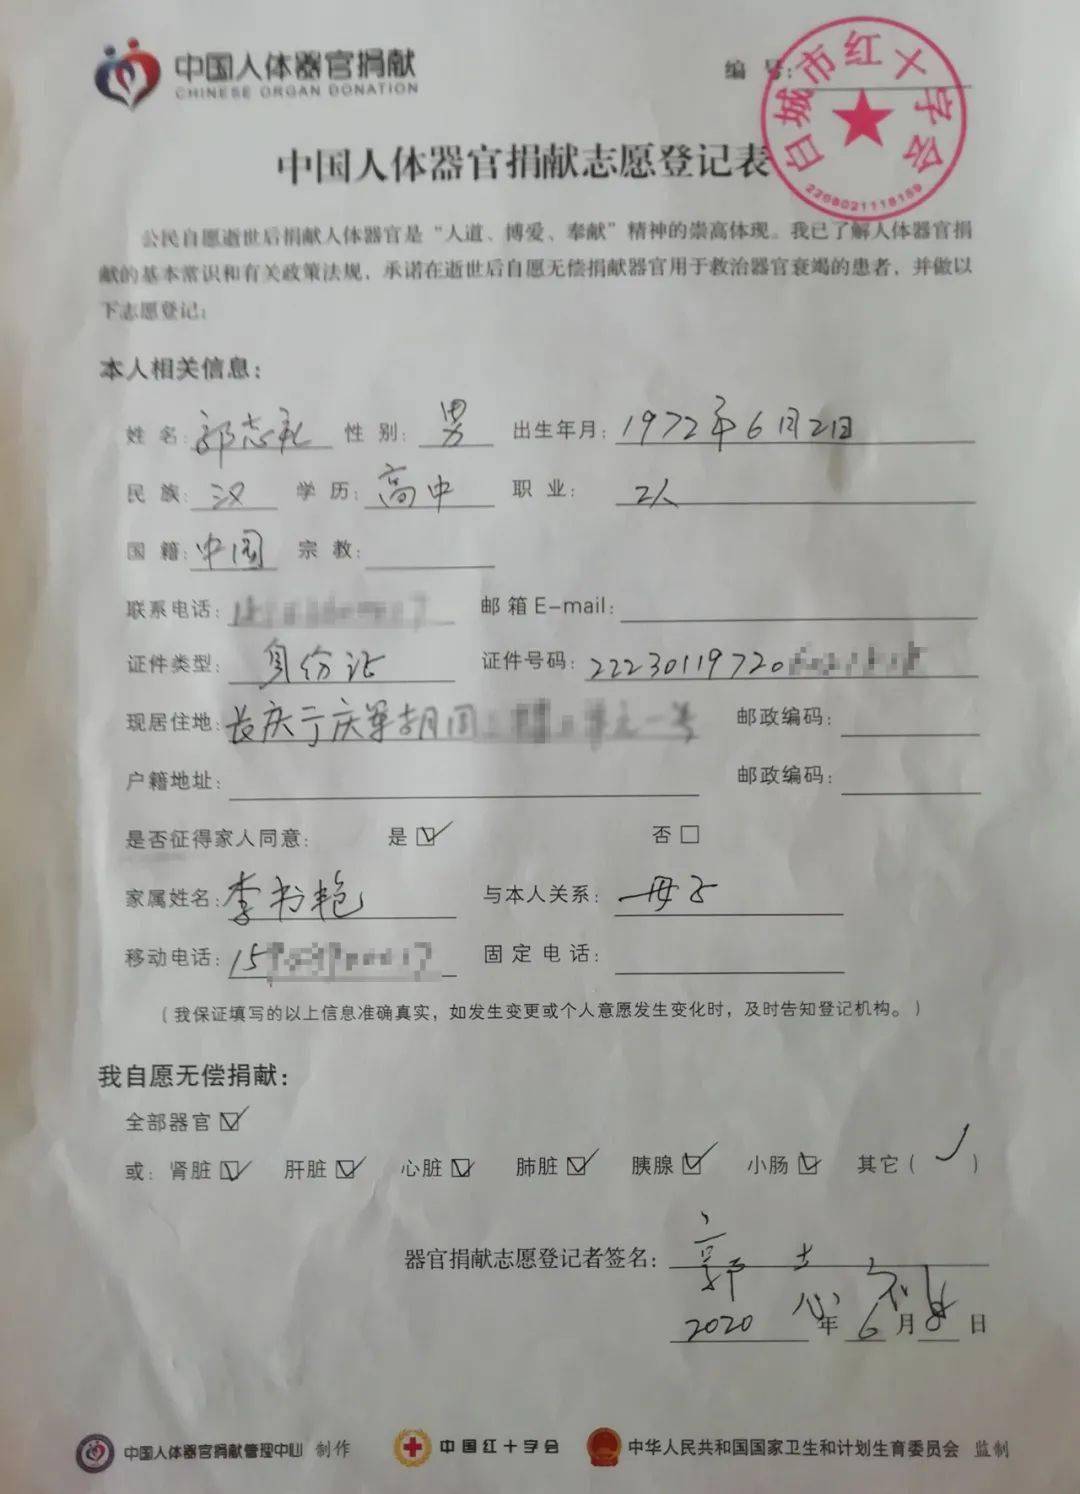 中国人体器官捐献
CHINESE ORGAN DONATION
编 号:
白城市红十字会
2208021118189
中国人体器官捐献志愿登记表
公民自愿逝世后捐献人体器官是“人道、博爱、奉献”精神的崇高体现。我已了解人体器官捐
献的基本常识和有关政策法规，承诺在逝世后自愿无偿捐献器官用于救治器官衰竭的患者，并做以
下志愿登记:
本人相关信息:
姓 名: 郭志礼 性 别: 男 出生年月: 1972年6月2日
民 族: 汉 学 历: 高中 职 业: 工人
国 籍: 中国 宗 教:
联系电话: 邮 箱 E-mail:
证件类型: 身份证 证件号码: 22230119720
现居住地: 长庆 庆军胡同 一号 邮政编码:
户籍地址: 邮政编码:
是否征得家人同意: 是☑ 否□
家属姓名: 李书艳 与本人关系: 母子
移动电话: 15 固 定 电 话:
（我保证填写的以上信息准确真实，如发生变更或个人意愿发生变化时，及时告知登记机构。）
我自愿无偿捐献:
全部器官☑
或: 肾脏☑ 肝脏☑ 心脏☑ 肺脏☑ 胰腺☑ 小肠☑ 其它（✓）
器官捐献志愿登记者签名: 郭志礼
2020年6月8日
中国人体器官捐献管理中心 制作 中国红十字会 中华人民共和国国家卫生和计划生育委员会 监制